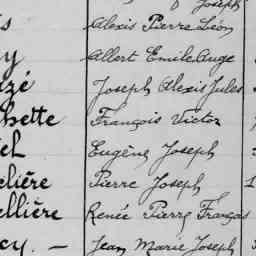 Joseph
s Alexis Pierre Léon
y Albert Emile Ange
uzé Joseph Alexis Jules
bette François Victor
el Eugène Joseph
elière Pierre Joseph 1
ellière Renée Pierre François
cy. — Jean Marie Joseph